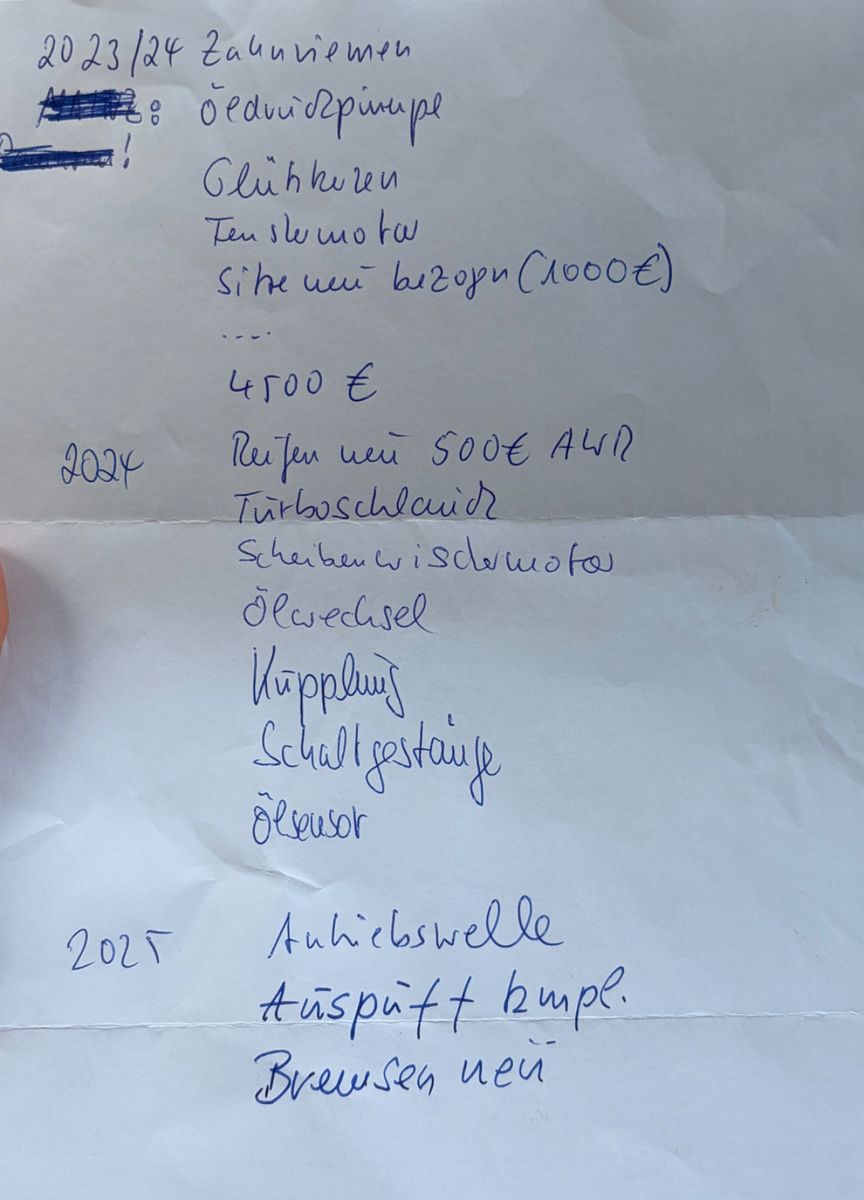 2023/24 Zahnriemen
: Öldruckpumpe
! 
Glühkerzen
Fenstermotor
Sitze neu bezogen (1000€)
....
4500 €
2024 Reifen neu 500€ AWR
Turboschlauch
Scheibenwischermotor
Ölwechsel
Kupplung
Schaltgestänge
Ölsensor
2025 Antriebswelle
Auspuff kmpl.
Bremsen neu